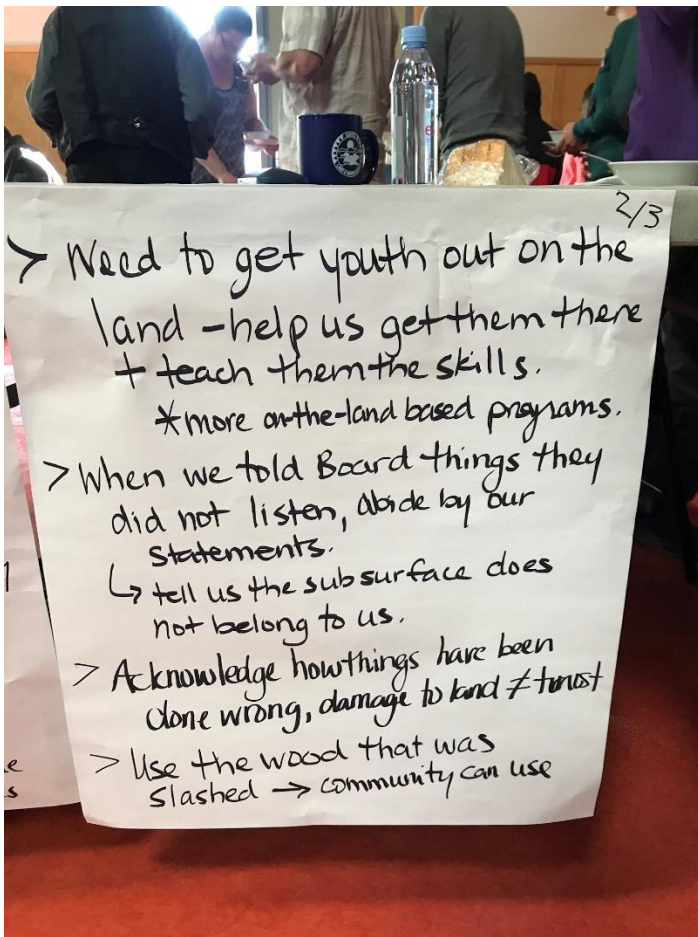 2/3
> Need to get youth out on the
land - help us get them there
+ teach them the skills.
* more on-the-land based programs.
> When we told Board things they
did not listen, abide by our
statements.
↳ tell us the subsurface does
not belong to us.
> Acknowledge how things have been
done wrong, damage to land ≠
> Use the wood that was
slashed → community can use
e
s